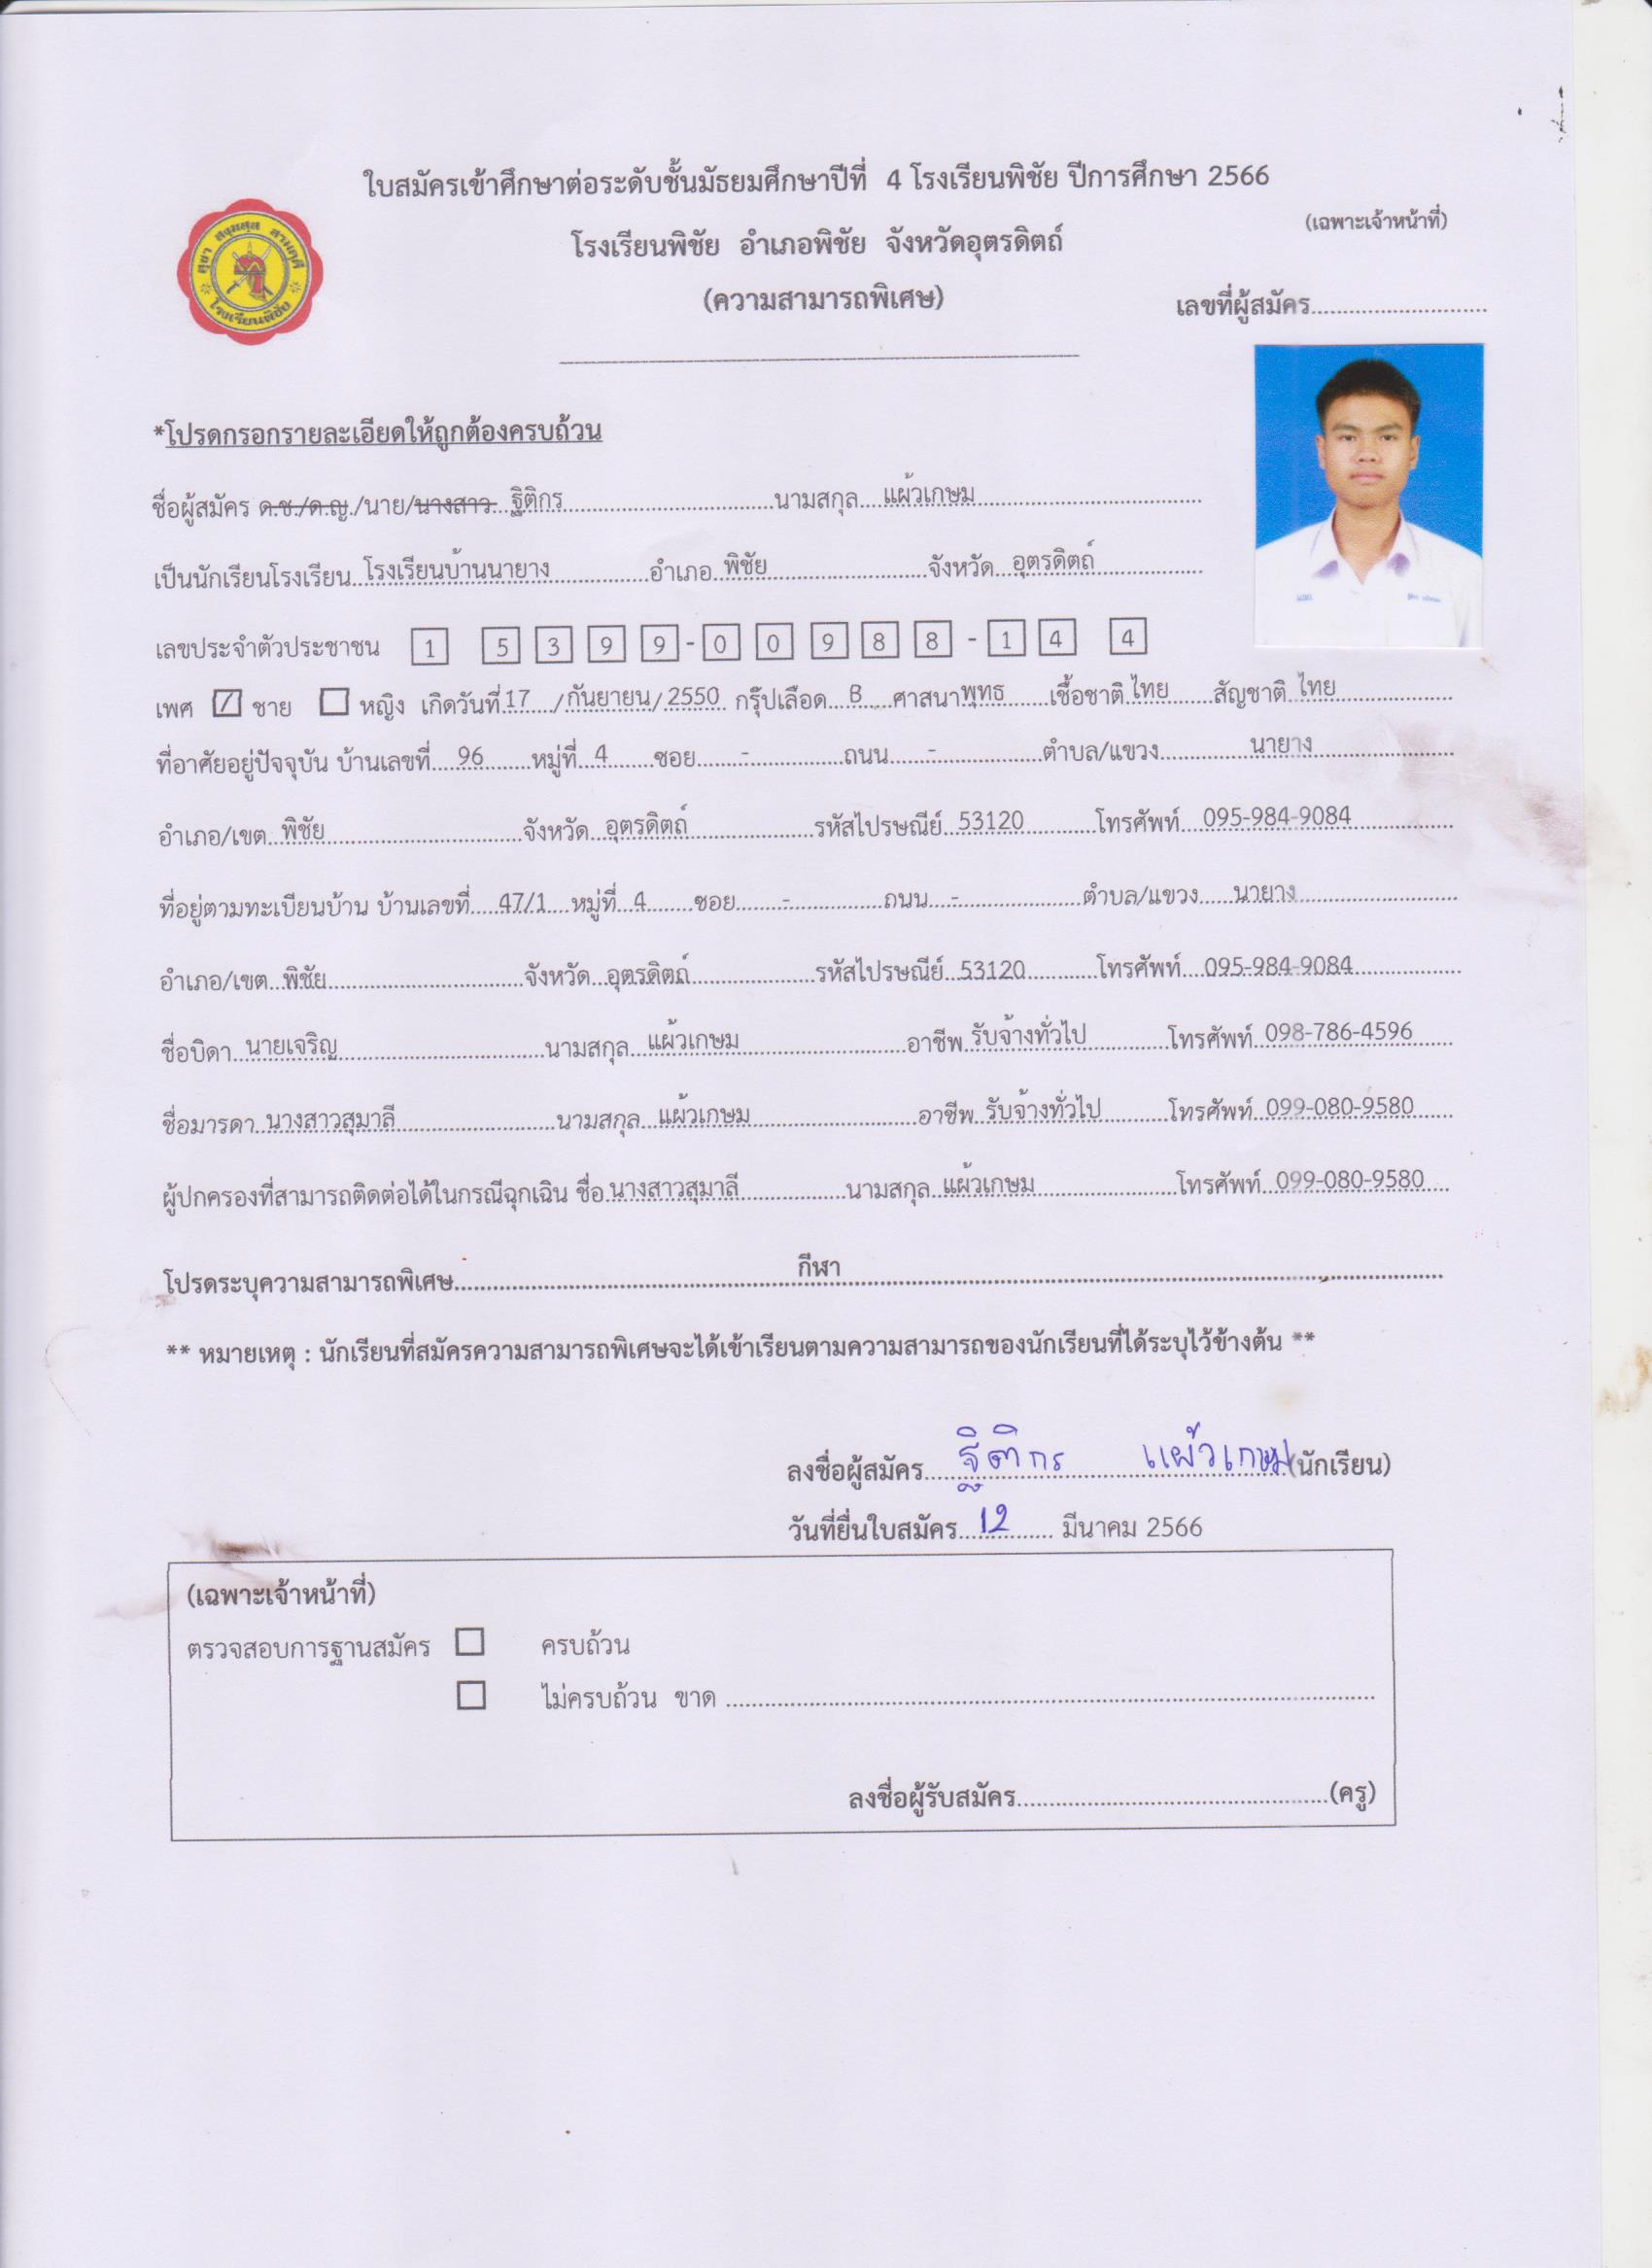 ใบสมัครเข้าศึกษาต่อระดับชั้นมัธยมศึกษาปีที่ 4 โรงเรียนพิชัย ปีการศึกษา 2566
(เฉพาะเจ้าหน้าที่)
โรงเรียนพิชัย อำเภอพิชัย จังหวัดอุตรดิตถ์
(ความสามารถพิเศษ)
เลขที่ผู้สมัคร............................
โรงเรียนพิชัย
*โปรดกรอกรายละเอียดให้ถูกต้องครบถ้วน
ชื่อผู้สมัคร ด.ช./ด.ญ./นาย/นางสาว ฐิติกร นามสกุล แผ้วเกษม
เป็นนักเรียนโรงเรียน โรงเรียนบ้านนายาง อำเภอ พิชัย จังหวัด อุตรดิตถ์
เลขประจำตัวประชาชน 1 5 3 9 9 - 0 0 9 8 8 - 1 4 4
เพศ / ชาย หญิง เกิดวันที่ 17 / กันยายน / 2550 กรุ๊ปเลือด B ศาสนา พุทธ เชื้อชาติ ไทย สัญชาติ ไทย
ที่อาศัยอยู่ปัจจุบัน บ้านเลขที่ 96 หมู่ที่ 4 ซอย - ถนน - ตำบล/แขวง นายาง
อำเภอ/เขต พิชัย จังหวัด อุตรดิตถ์ รหัสไปรษณีย์ 53120 โทรศัพท์ 095-984-9084
ที่อยู่ตามทะเบียนบ้าน บ้านเลขที่ 47/1 หมู่ที่ 4 ซอย - ถนน - ตำบล/แขวง นายาง
อำเภอ/เขต พิชัย จังหวัด อุตรดิตถ์ รหัสไปรษณีย์ 53120 โทรศัพท์ 095-984-9084
ชื่อบิดา นายเจริญ นามสกุล แผ้วเกษม อาชีพ รับจ้างทั่วไป โทรศัพท์ 098-786-4596
ชื่อมารดา นางสาวสุมาลี นามสกุล แผ้วเกษม อาชีพ รับจ้างทั่วไป โทรศัพท์ 099-080-9580
ผู้ปกครองที่สามารถติดต่อได้ในกรณีฉุกเฉิน ชื่อ นางสาวสุมาลี นามสกุล แผ้วเกษม โทรศัพท์ 099-080-9580
โปรดระบุความสามารถพิเศษ กีฬา
** หมายเหตุ : นักเรียนที่สมัครความสามารถพิเศษจะได้เข้าเรียนตามความสามารถของนักเรียนที่ได้ระบุไว้ข้างต้น **
ลงชื่อผู้สมัคร ฐิติกร แผ้วเกษม (นักเรียน)
วันที่ยื่นใบสมัคร 12 มีนาคม 2566
(เฉพาะเจ้าหน้าที่)
ตรวจสอบการฐานสมัคร ครบถ้วน
ไม่ครบถ้วน ขาด ............................
ลงชื่อผู้รับสมัคร............................(ครู)